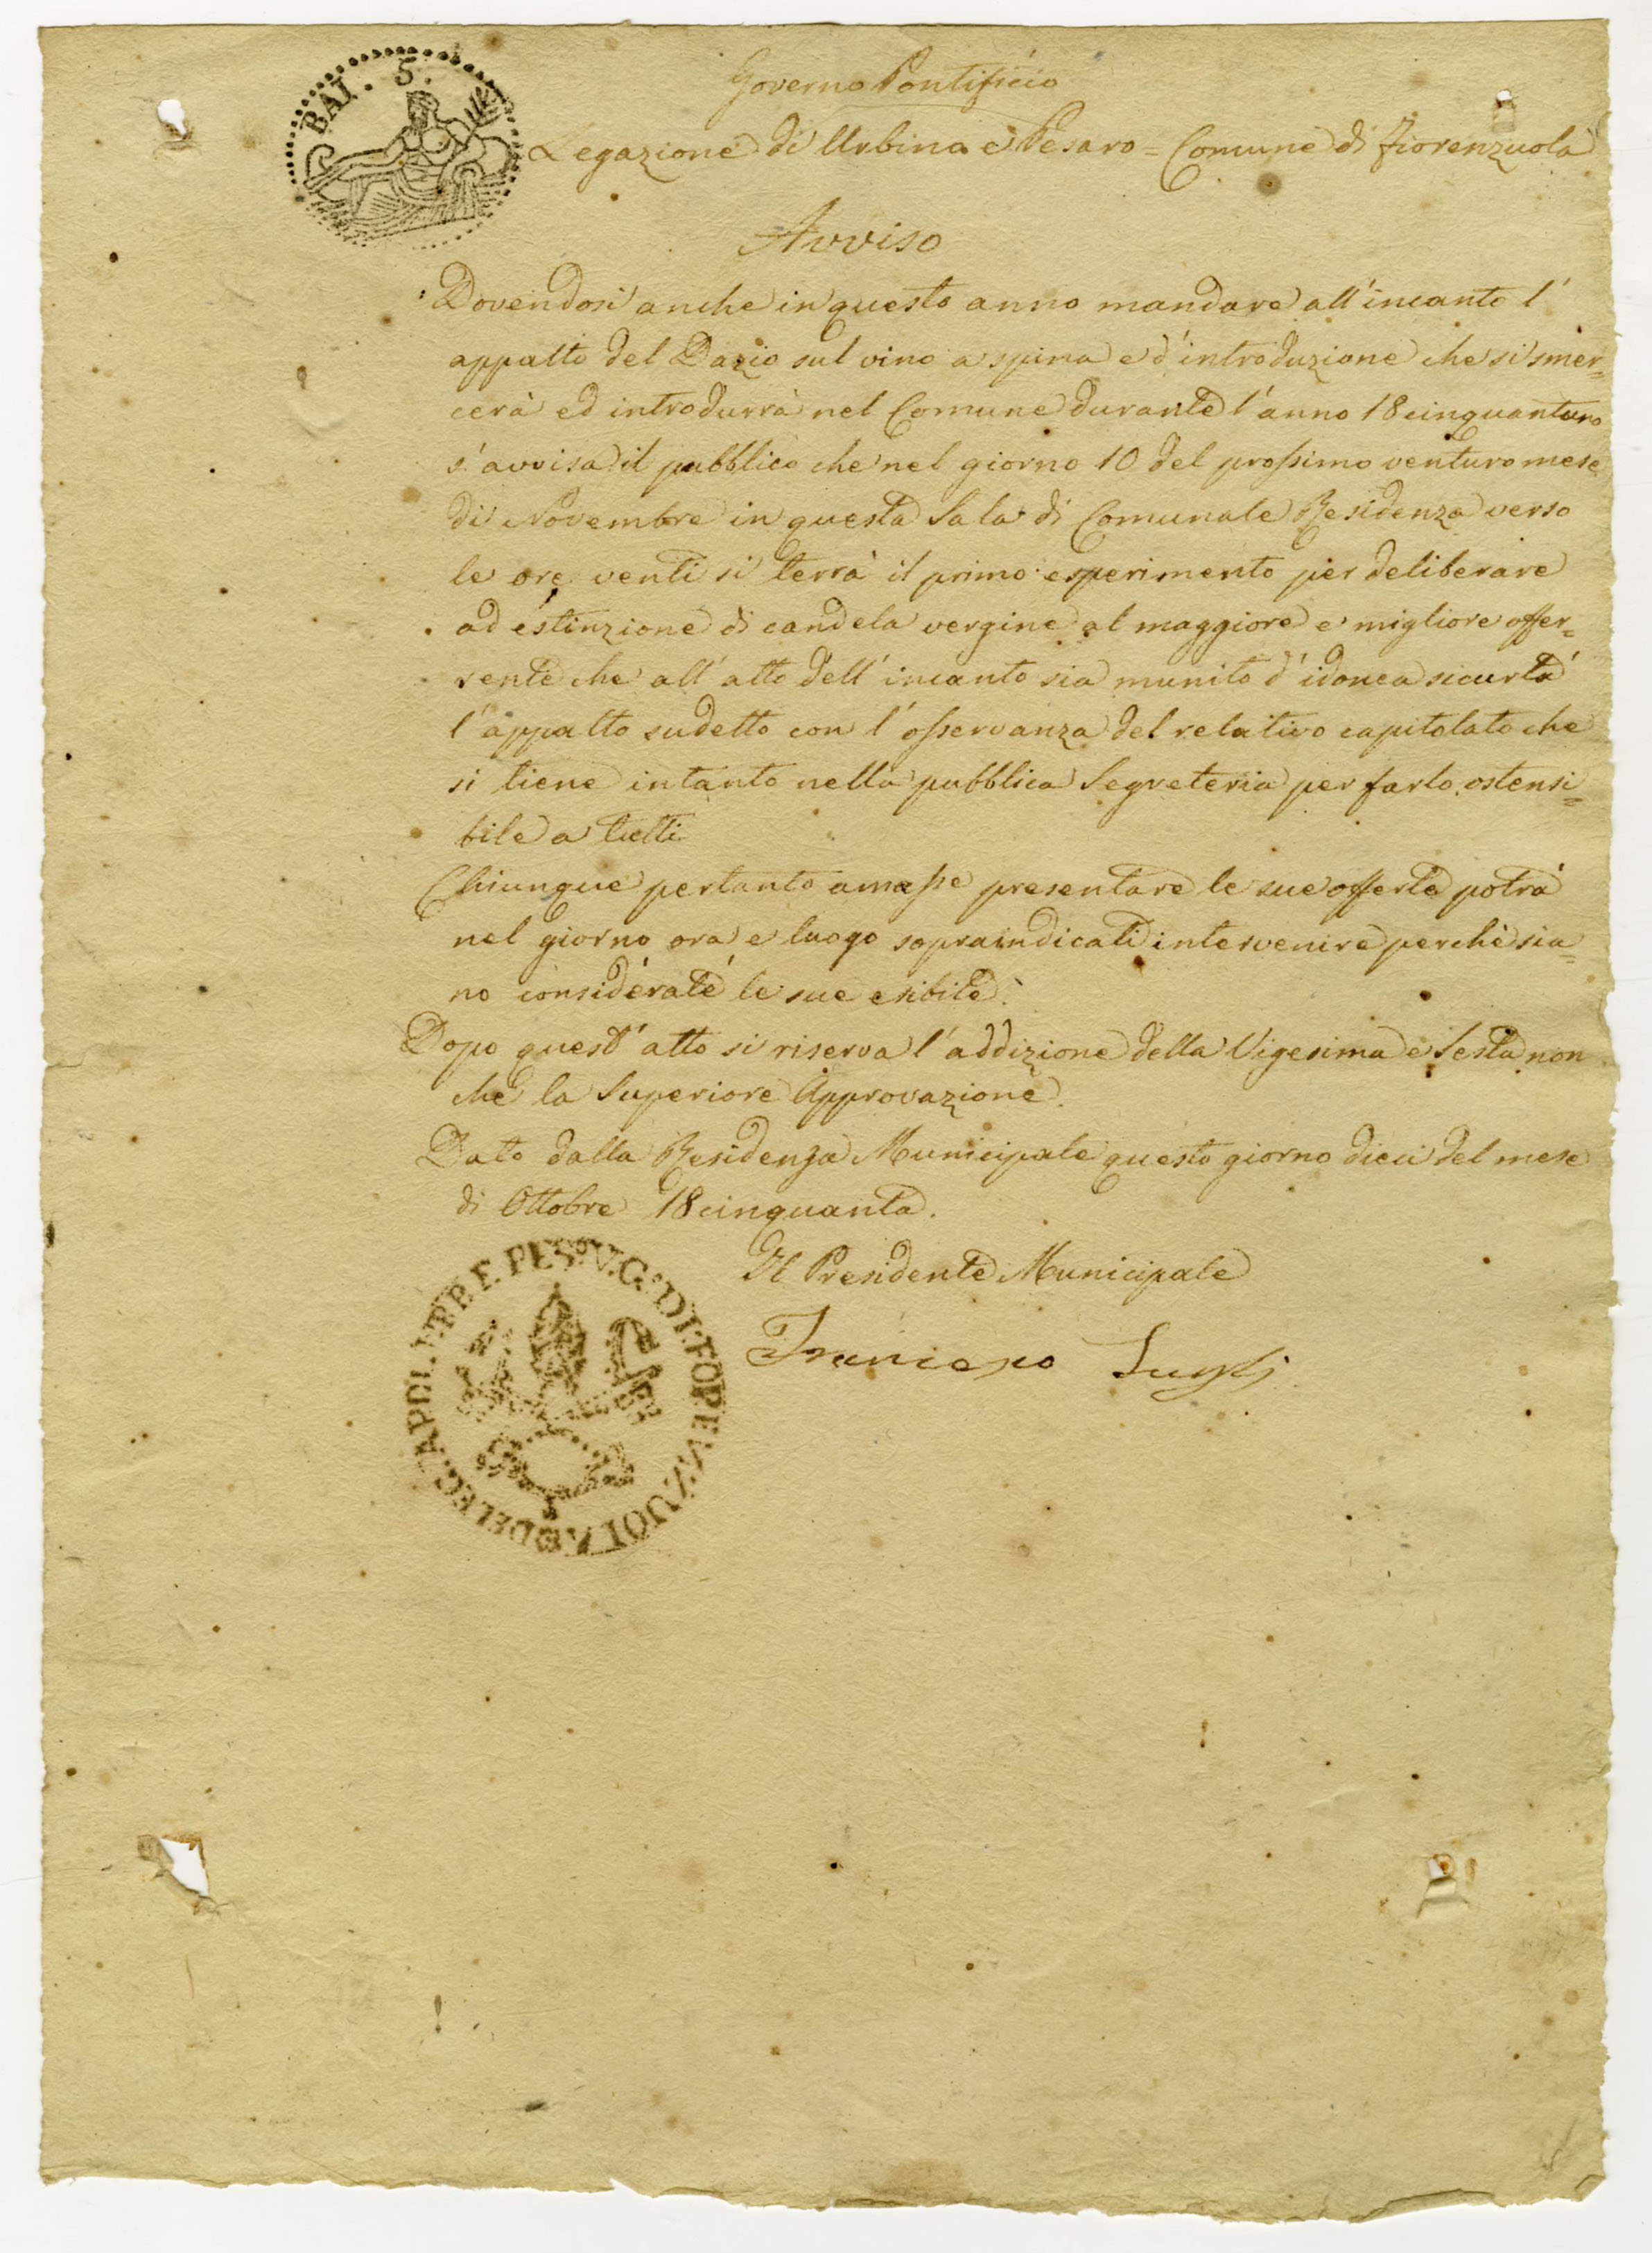 BAI. 5.
Governo Pontificio
Legazione di Urbino e Pesaro = Comune di Fiorenzuola
Avviso
Dovendosi anche in questo anno mandare all'incanto l'
appalto del Dazio sul vino a spina e d'introduzione che si smer=
cerà ed introdurrà nel Comune durante l'anno 18cinquantuno
s'avvisa il pubblico che nel giorno 10 del prossimo venturo mese
di Novembre in questa Sala di Comunale Residenza verso
le ore venti si terrà il primo esperimento per deliberare
ad estinzione di candela vergine al maggiore e migliore offer=
rente che all'atto dell'incanto sia munito d'idonea sicurtà
l'appalto sudetto con l'osservanza del relativo capitolato che
si tiene intanto nella pubblica Segreteria per farlo ostensi=
bile a tutti
Chiunque pertanto amasse presentare le sue offerte potrà
nel giorno ora e luogo sopraindicati intervenire perchè sia=
no considerate le sue esibite.
Dopo quest'atto si riserva l'addizione della Vigesima e Sesta non
che la Superiore Approvazione.
Dato dalla Residenza Municipale questo giorno dieci del mese
di Ottobre 18cinquanta.
Il Presidente Municipale
Francesco
DELEG. APOL. PES. V.G. DI FORENZUOLA